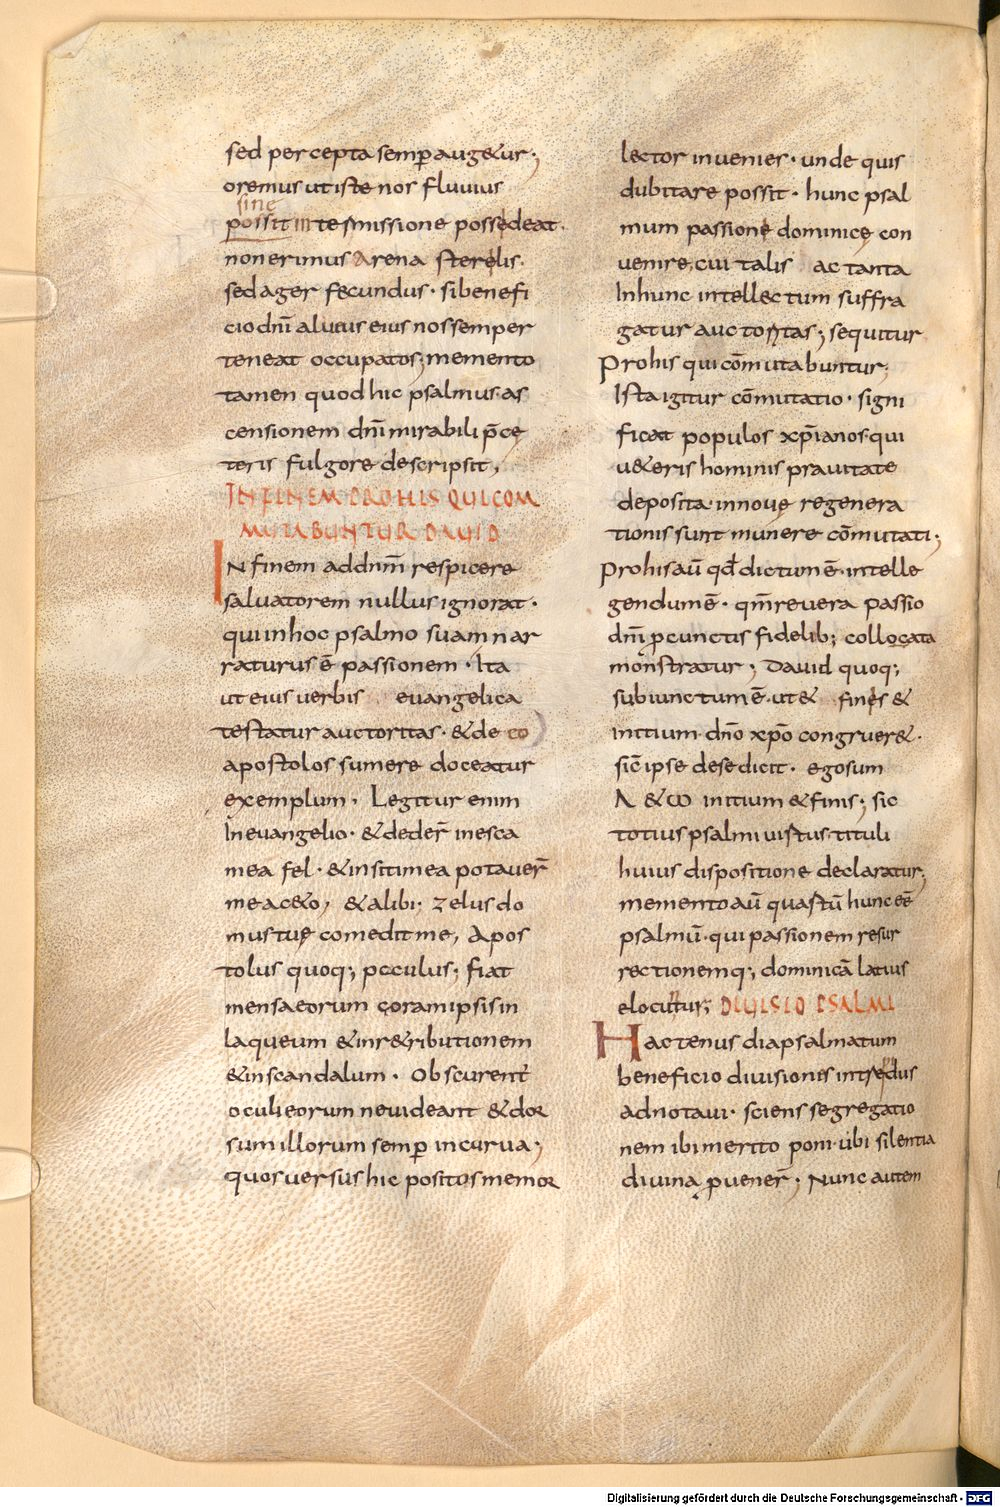 sed percepta semꝑ augetur;
oremus ut iste nor fluuius
sine
possit intesmissione possedeat.
non erimus arena sterelis.
sed ager fecundus· si benefi
cio dnī alutus eius nos semper
teneat occupatos; memento
tamen quod hic psalmus· as
censionem dnī mirabili p̄ce
teris fulgore descripsit,
IN FINEM PRO HIS QUI COM
MUTABUNTUR DAUID
IN finem ad dnm̄ respicere
saluatorem nullus ignorat·
qui in hoc psalmo suam nar
raturus ē passionem· Ita
ut eius uerbis euangelica
testatur auctoritas· & de co
apostolos sumere doceatur
exemplum· Legitur enim
In euangelio· & deder̄ in esca
mea fel· & in siti mea potauer̄
me aceto, & alibi· zelus do
mus tuę comedit me, Apos
tolus quoq; pcculus; fiat
mensa eorum coram ipsis in
laqueum & in retributionem
& in scandalum· Obscurent̄
oculi eorum ne uideant & dor
sum illorum semꝑ incurua;
quos uersus hic positos memor
lector inuenies· unde quis
dubitare possit· hunc psal
mum passione dominicę con
uenire, cui talis ac tanta
In hunc intellectum suffra
gatur auctoritas; sequitur
Pro his qui cōmutabuntur;
Ista igitur cōmutatio· signi
ficat populos xp̄ianos· qui
ueteris hominis prauitate
deposita· in nouę regenera
tionis sunt munere cōmutati;
Pro his aū qd̄ dictum ē· intelle
gendum ē· qm̄ reuera passio
dnī ꝑ cunctis fidelib; collocata
monstratur; Dauid quoq;
subiunctum ē· ut & finis &
initium dn̄o xp̄o congrueret·
sic̄ ipse de se dicit· ego sum
Α & ω initium & finis; sic
totius psalmi uistus· tituli
huius dispositione declaratur;
memento aū quastū hunc eē
psalmū· qui passionem resur
rectionemq; dominicā latius
elocutur; DIUISIO PSALMI
Hactenus diapsalmatum
beneficio diuisionis intsedus
adnotaui· sciens segregatio
nem ibi merito poni· ubi silentia
diuina ꝑuener̄; Nunc autem
Digitalisierung gefördert durch die Deutsche Forschungsgemeinschaft - DFG